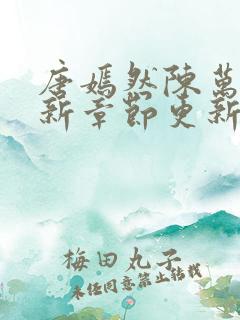 唐嫣然陳萬
新章節更新
梅田丸子
未经同意禁止转载